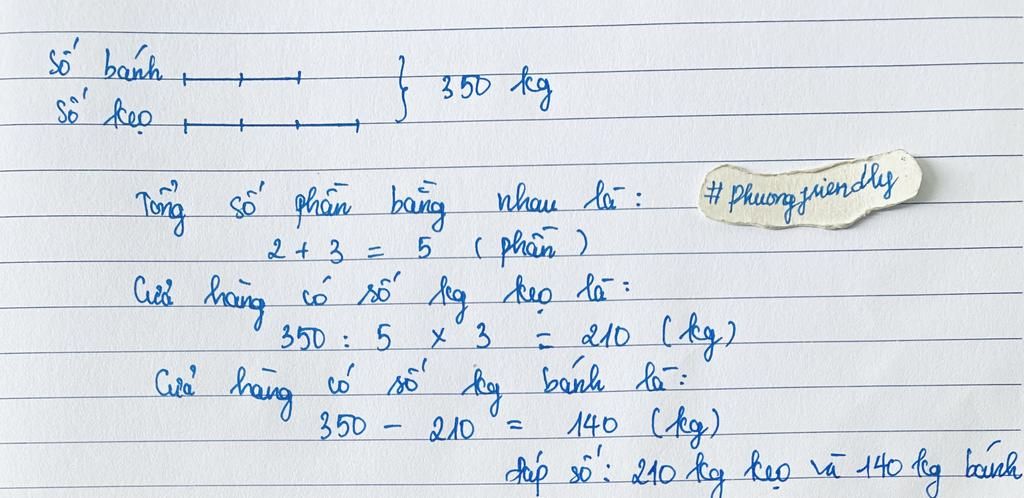 Số bánh
Số kẹo
350 kg
Tổng số phần bằng nhau là:
#phuongfriendly
2 + 3 = 5 (phần)
Cửa hàng có số kg kẹo là:
350 : 5 x 3 = 210 (kg)
Cửa hàng có số kg bánh là:
350 - 210 = 140 (kg)
đáp số: 210 kg kẹo và 140 kg bánh